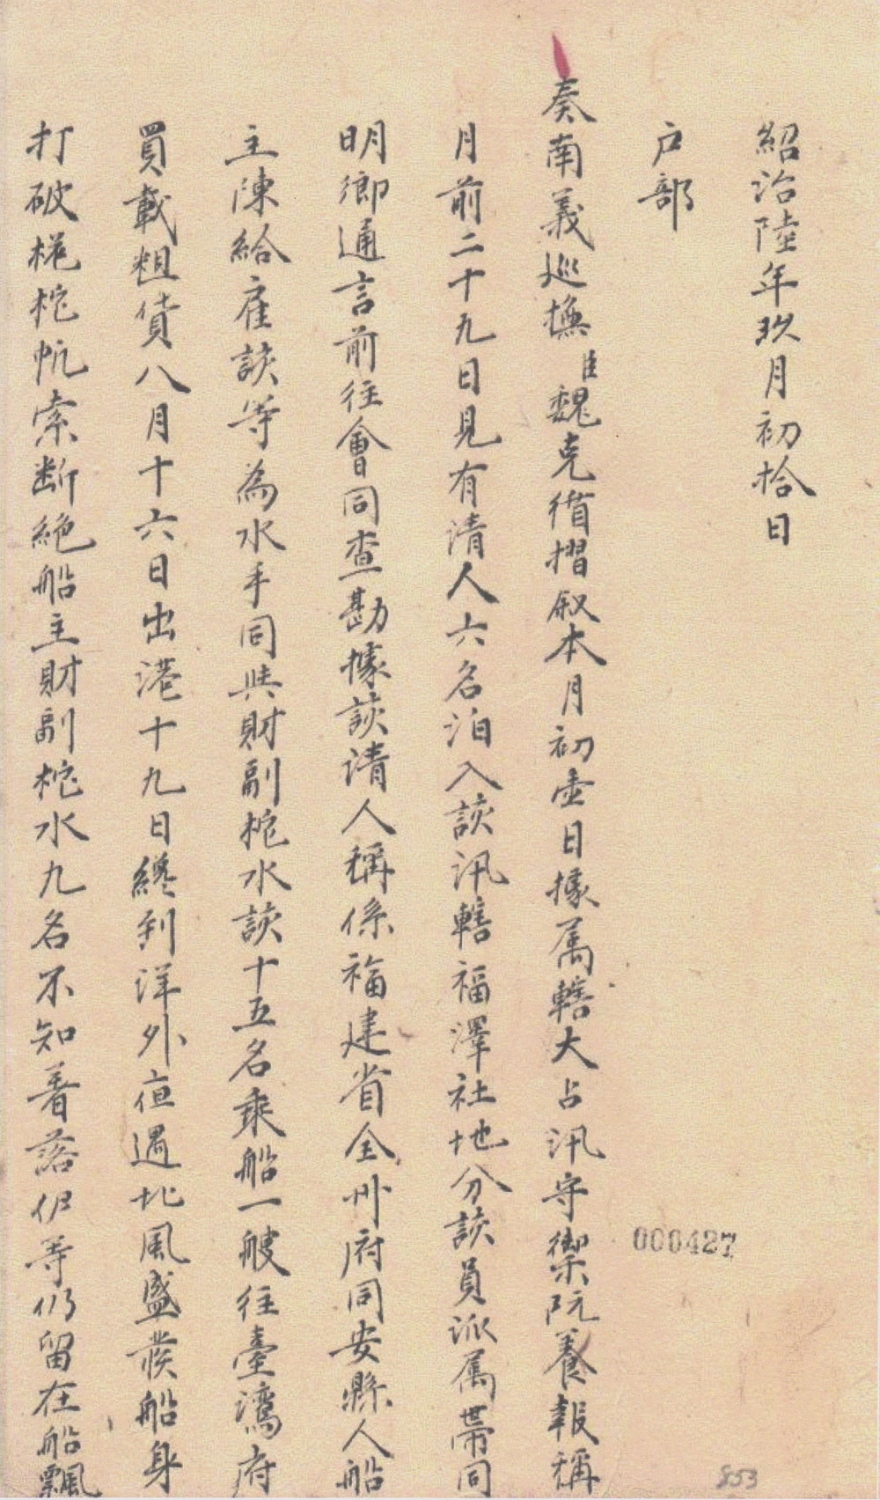 紹治陸年玖月初拾日
户部
奏南義巡撫臣魏克循摺叙本月初壹日據属轄大占汛守禦阮養報稱
月前二十九日見有清人六名泊入該汛轄福澤社地分該員派属帶同
明鄉通言前往會同查勘據該清人稱係福建省全州府同安縣人船
主陳給雇該等為水手同與財副柁水該十五名乘船一艘往臺灣府
買載粗貨八月十六日出港十九日纔到洋外夜遇北風盛發船身
打破桅柁帆索断絶船主財副柁水九名不知着落伊等仍留在船飄
000427
853